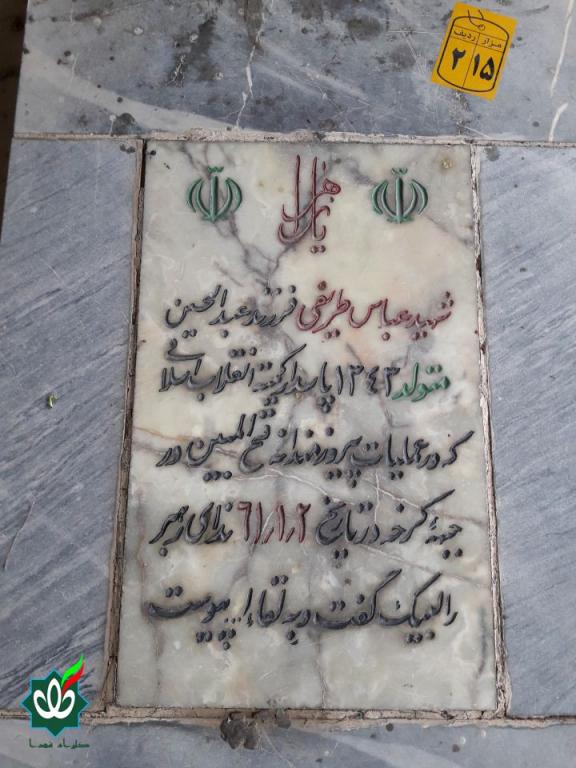 مزار ردیف
۱۵ ۲
یا زهرا
شهید عباس طریفی فرزند عبدالحسین
متولد ۱۳۴۳ پاسدار کمیته انقلاب اسلامی
که در عملیات پیروزمندانه فتح المبین در
جبهه کرخه در تاریخ ۶۱/۱/۲ ندای رهبر
را لبیک گفت و به لقاء ا... پیوست